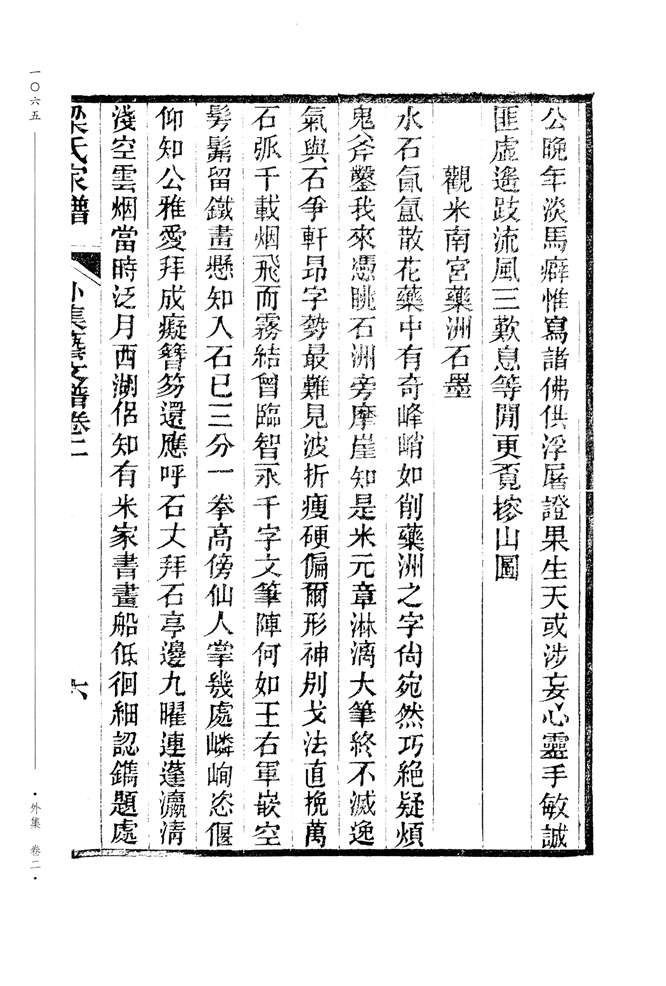 公晚年淡馬癖惟寫諸佛供浮屠證果生天或涉妄心靈手敏誠
匪虛遙跂流風三歎息等閒更覓拶山圖
觀米南宮藥洲石墨
水石氤氳散花藥中有奇峰峭如削藥洲之字尙宛然巧絶疑煩
鬼斧鑿我來憑眺石洲旁摩崖知是米元章淋漓大筆終不滅逸
氣與石爭軒昂字勢最難見波折瘦硬偏爾形神別戈法直挽萬
石弤千載烟飛而霧結曾臨智永千字文筆陣何如王右軍嵌空
髣髴留鐵畫懸知入石已三分一拳高傍仙人掌幾處嶙峋恣偃
仰知公雅愛拜成癡簪笏還應呼石丈拜石亭邊九曜連蓬瀛清
淺空雲烟當時泛月西湖侶知有米家書畫船低徊細認鐫題處
梁氏家譜
外集藝文譜卷二
六
一〇六五
·外集 卷二·